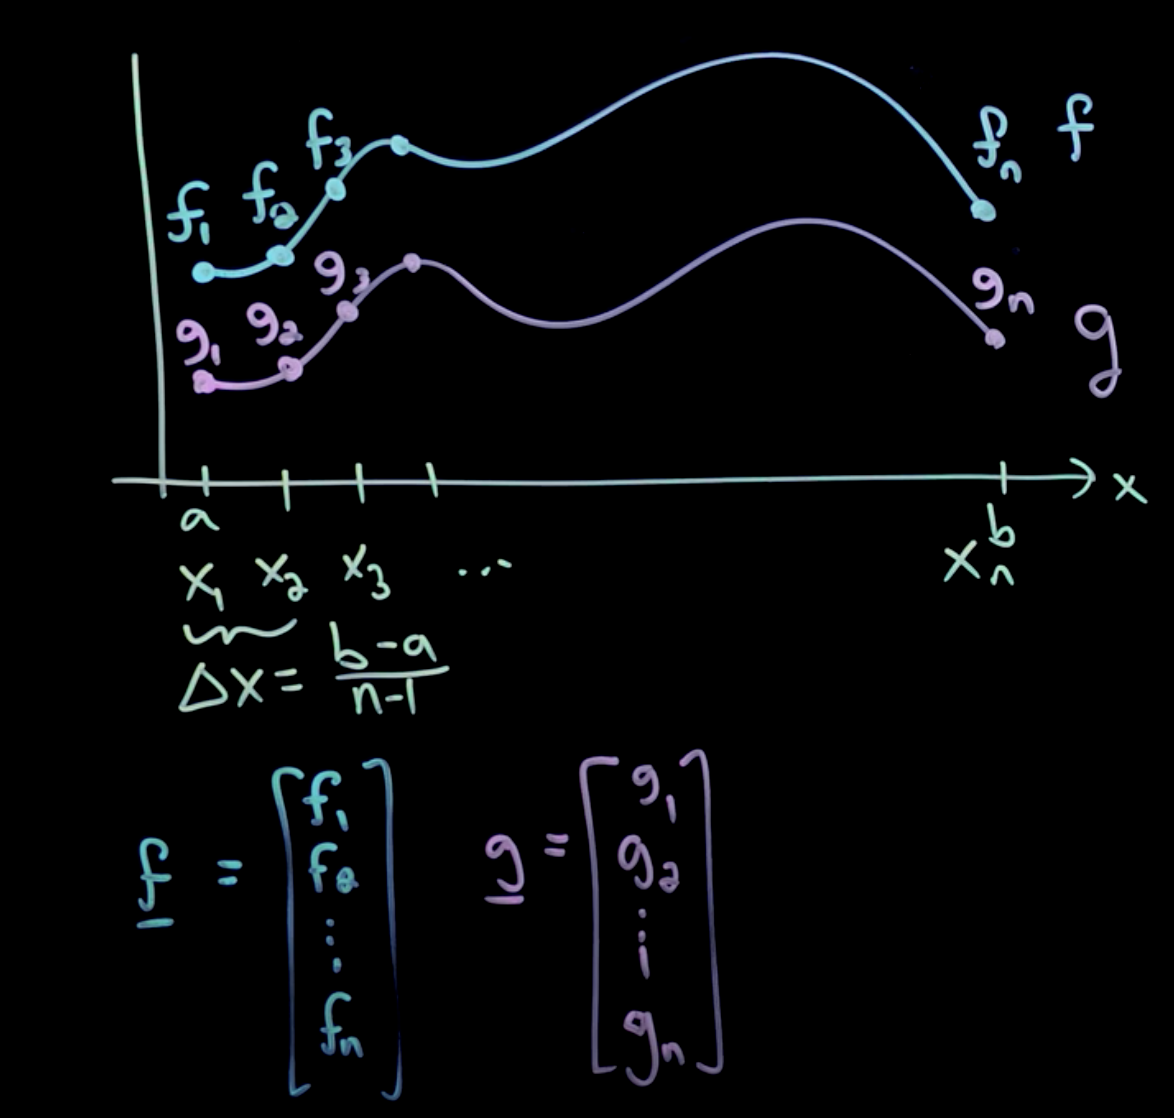 f₁ f₂ f₃ fₙ f
g₁ g₂ g₃ gₙ g
a b x
x₁ x₂ x₃ ... xₙ
Δx = (b-a)/(n-1)
f = [f₁ f₂ ⋮ fₙ] g = [g₁ g₂ ⋮ gₙ]